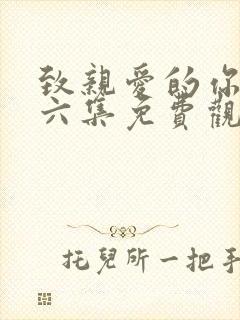 致親愛的你
六集免費觀
托兒所一把手